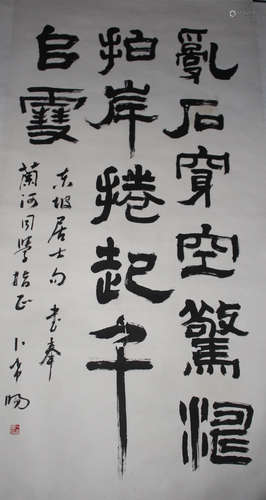 亂石穿空驚濤
拍岸捲起千
𠂤雪
东坡居士句 书奉
蘭河同學指正
卜希旸